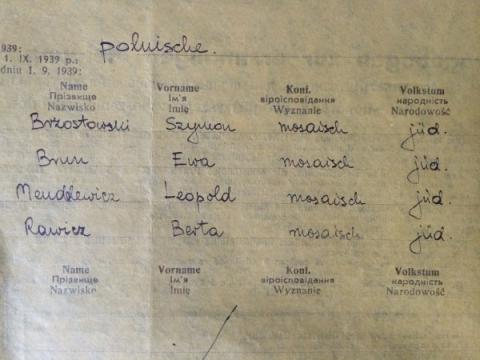 939: polnische.
1. IX. 1939 р.:
dniu 1. 9. 1939:
Name Vorname Konf. Volkstum
Прізвище Ім'я віроісповідання народність
Nazwisko Imię Wyznanie Narodowość
Brzostowski Szymon mosaisch jüd.
Brun Ewa mosaisch jüd.
Mendlewicz Leopold mosaisch jüd.
Rawicz Berta mosaisch jüd.
Name Vorname Konf. Volkstum
Прізвище Ім'я віроісповідання народність
Nazwisko Imię Wyznanie Narodowość